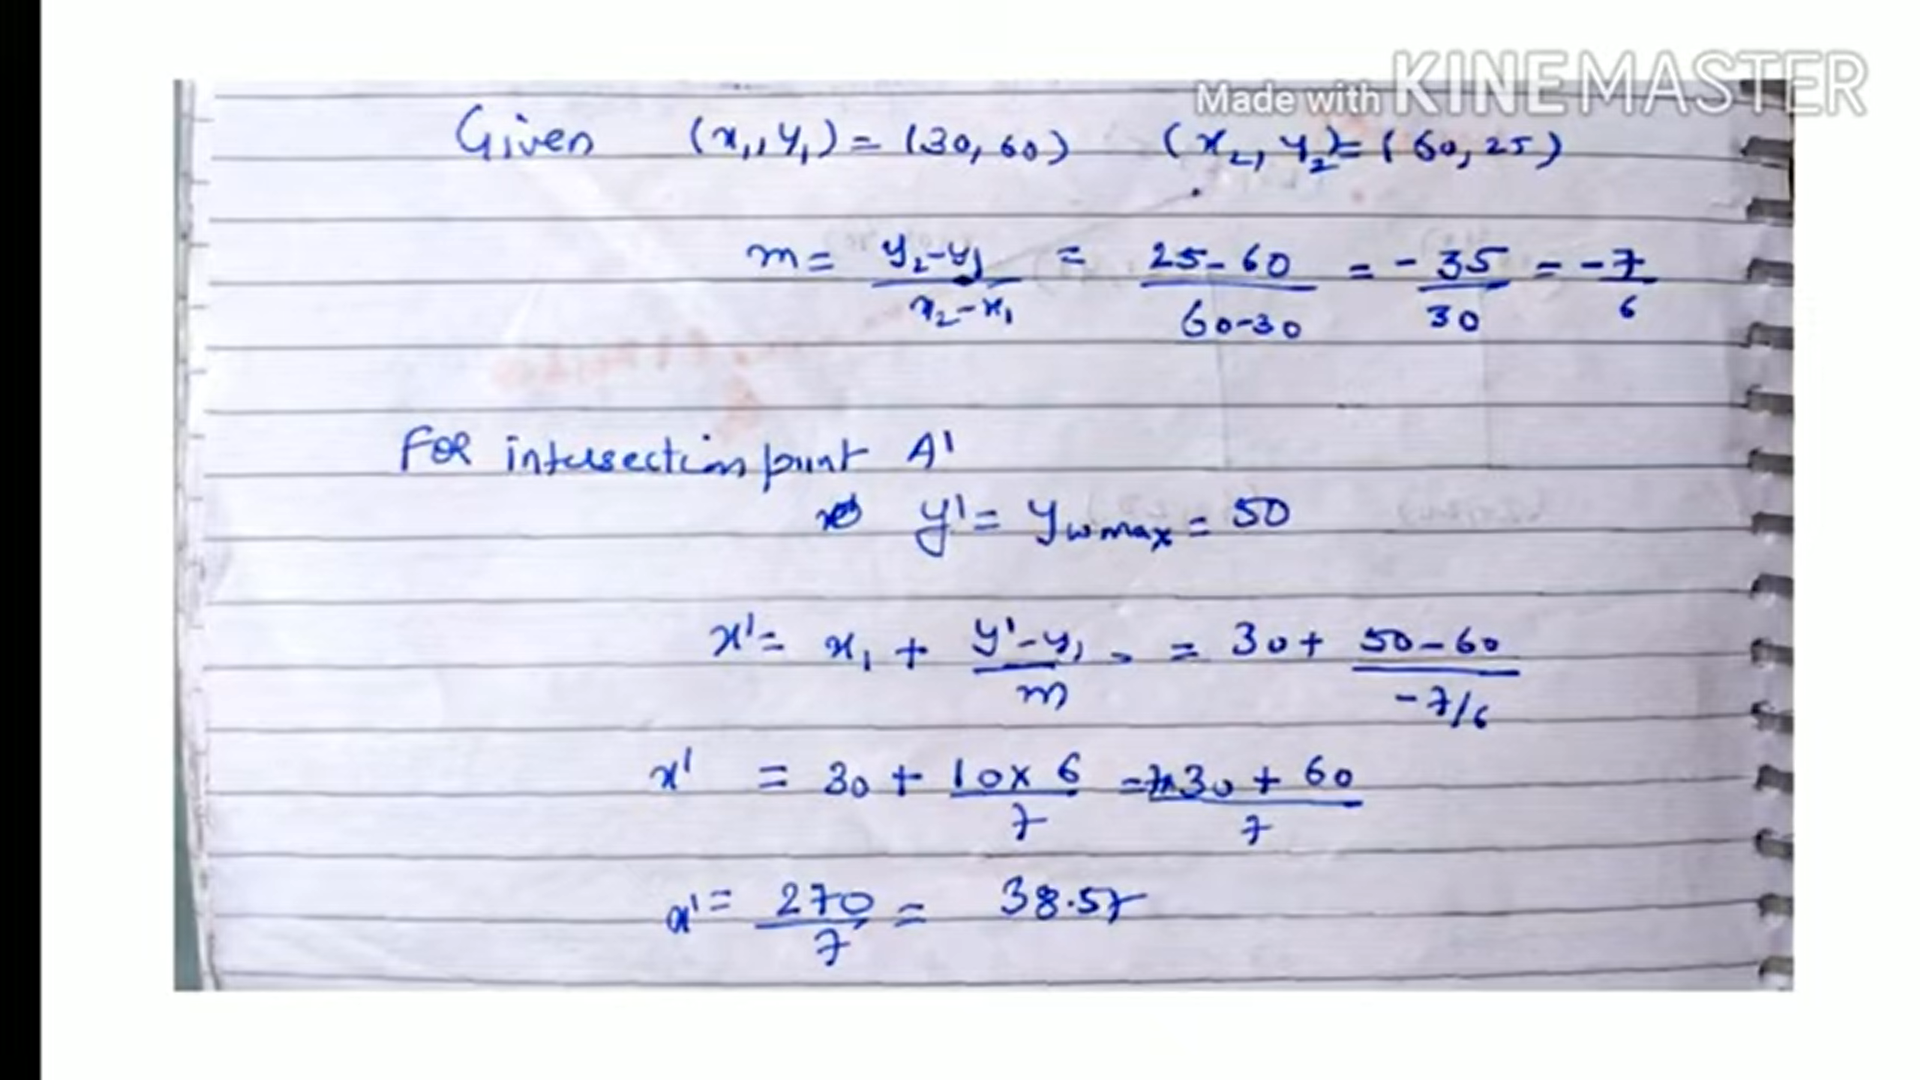 Made with KINEMASTER
Given (x₁, y₁) = (30, 60) (x₂, y₂) = (60, 25)
m = y₂-y₁ / x₂-x₁ = 25-60 / 60-30 = -35 / 30 = -7 / 6
FOR intersection point A'
y' = ywmax = 50
x' = x₁ + y'-y₁ / m = 30 + 50-60 / -7/6
x' = 30 + 10 x 6 / 7 = 7x30 + 60 / 7
x' = 270 / 7 = 38.57